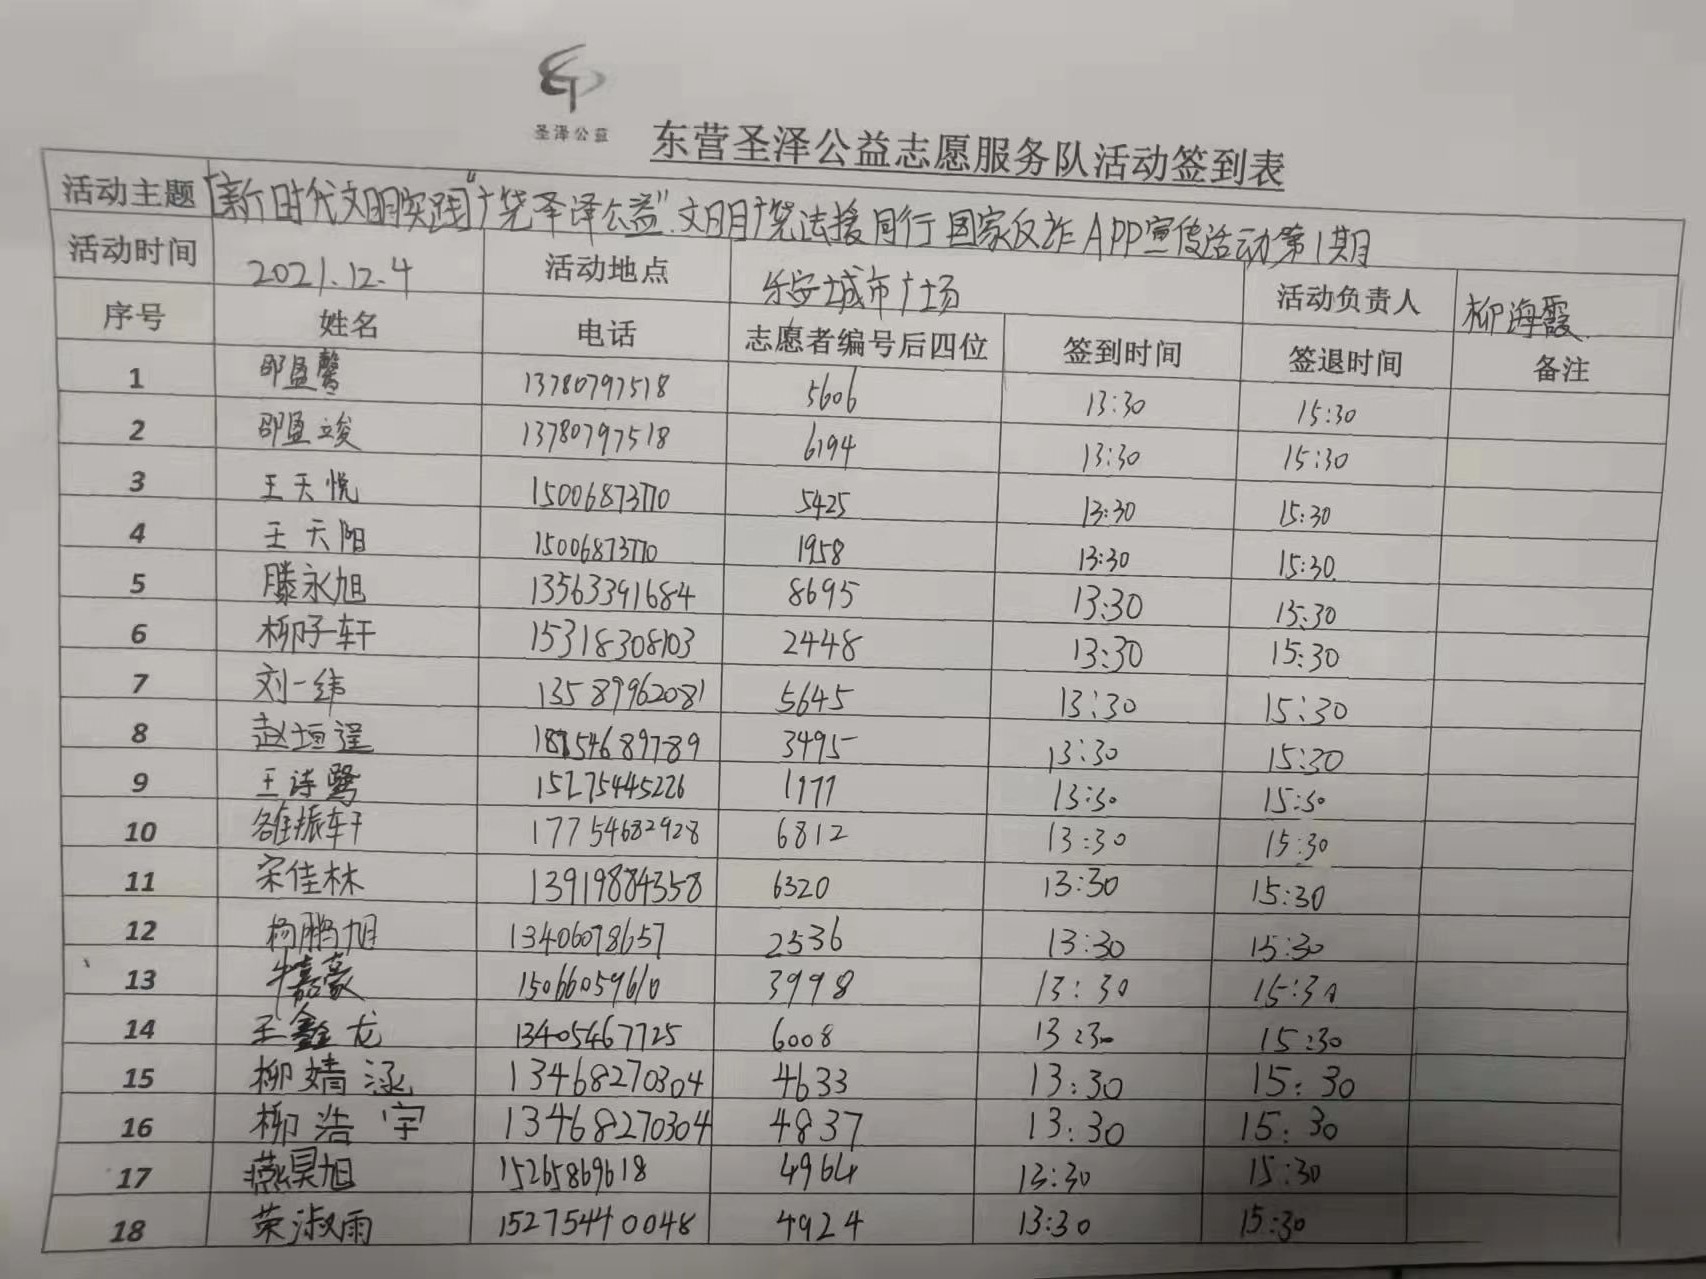 圣泽公益
东营圣泽公益志愿服务队活动签到表
活动主题 「新时代文明实践"广饶圣泽公益".文明广饶法援同行 国家反诈APP宣传活动第1期
活动时间 2021.12.4 活动地点 乐安城市广场 活动负责人 柳海霞
序号 姓名 电话 志愿者编号后四位 签到时间 签退时间 备注
1 邵盈馨 13780797518 5606 13:30 15:30
2 邵盈竣 13780797518 6194 13:30 15:30
3 王天悦 15006873770 5425 13:30 15:30
4 王天阳 15006873770 1958 13:30 15:30
5 滕永旭 13563391684 8695 13:30 15:30
6 柳子轩 15318308103 2448 13:30 15:30
7 刘一纬 13589962081 5645 13:30 15:30
8 赵垣逞 18754689789 3495 13:30 15:30
9 王诗鹭 15275445226 1177 13:30 15:30
10 雒振轩 17754682928 6812 13:30 15:30
11 宋佳林 13919884358 6320 13:30 15:30
12 杨鹏旭 13406078657 2536 13:30 15:30
13 牛嘉豪 15066059610 3998 13:30 15:30
14 王鑫龙 13405467725 6008 13:30 15:30
15 柳婧涵 13468270304 4633 13:30 15:30
16 柳浩宇 13468270304 4837 13:30 15:30
17 燕昊旭 15265869618 4964 13:30 15:30
18 荣淑雨 15275440048 4924 13:30 15:30